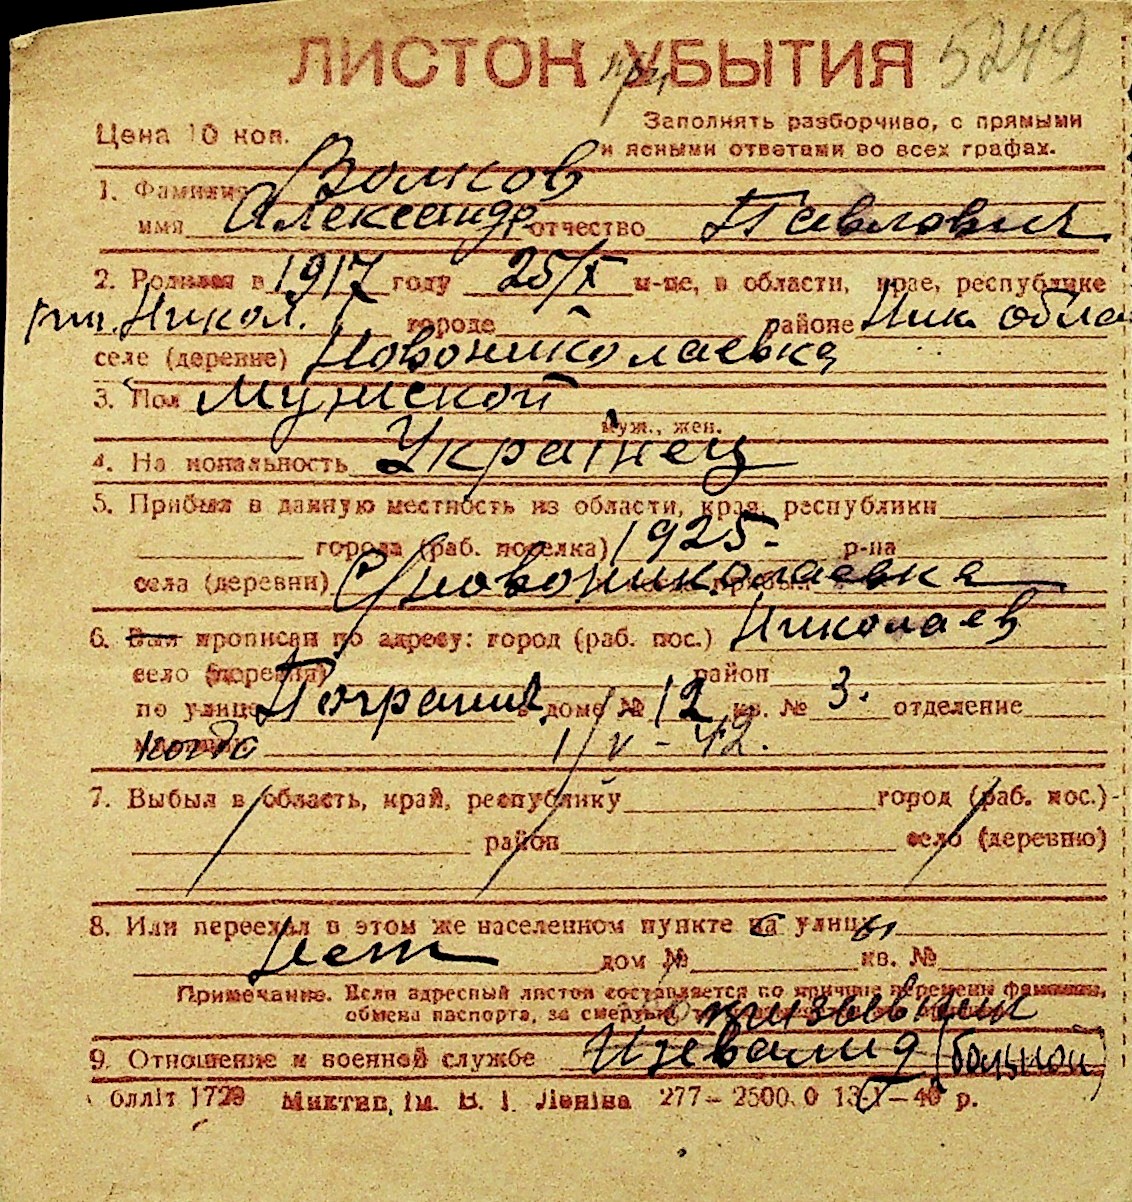 ЛИСТОК УБЫТИЯ 5249
Цена 10 коп.
Заполнять разборчиво, с прямыми
и ясными ответами во всех графах.
1. Фамилия Волков
имя Александр отчество Павлович
2. Родился в 1917 году 25/X м-це, в области, крае, республике
Никол. городе районе Ник. обла
селе (деревне) Новониколаевка
3. Пол Мужской
муж., жен.
4. Национальность Українец
5. Прибыл в данную местность из области, края, республики
города (раб. поселка) 1925. р-на
села (деревни) С/Новониколаевка
6. Был прописан по адресу: город (раб. пос.) Николаев
село (деревня) район
по улице Погранич. в доме № 12 кв. № 3. отделение
когда 1/V - 42.
7. Выбыл в область, край, республику город (раб. пос.)
район село (деревню)
8. Или переехал в этом же населенном пункте с улицы
Нет дом № кв. №
Примечание. Если адресный листок составляется по причине перемены фамилии,
обмена паспорта, за смертью,
9. Отношение к военной службе Инвалид (больной)
Миктип. ім. В. І. Леніна 277 – 2500.